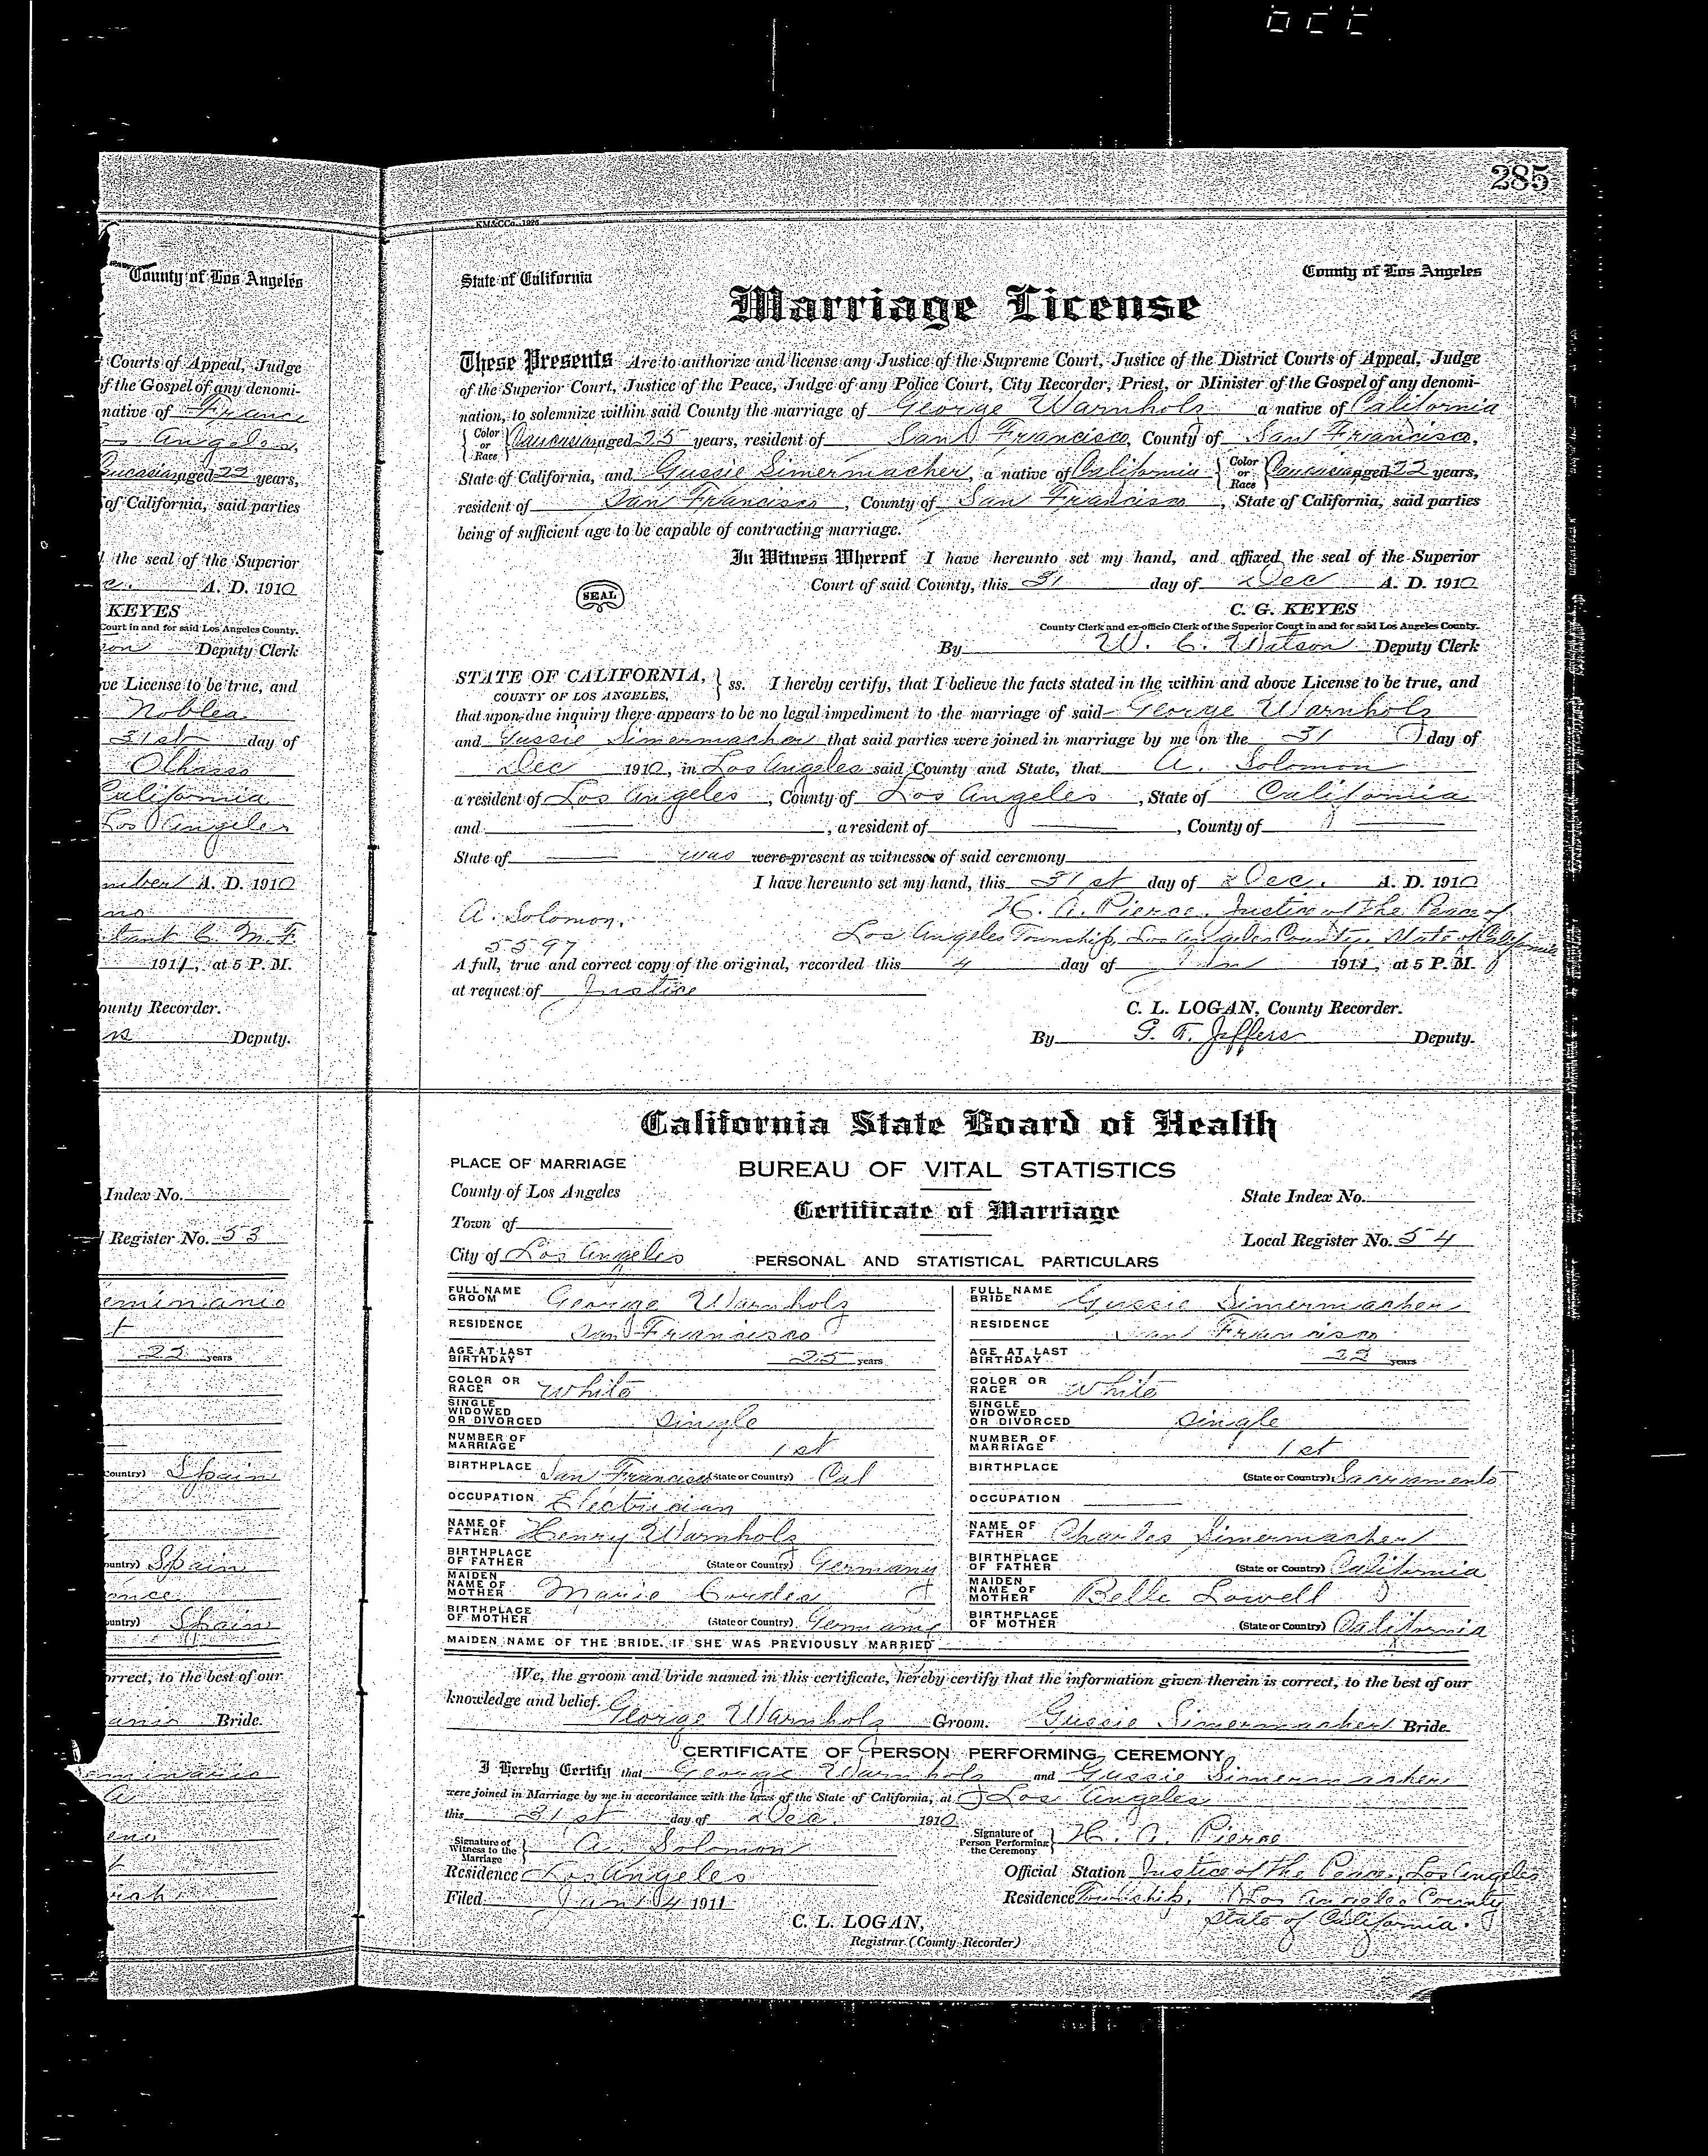 285
KM&CCo. 1926
County of Los Angeles
Courts of Appeal, Judge
of the Gospel of any denomi-
native of
Angeles,
Caucasian aged 22 years,
of California, said parties
the seal of the Superior
A. D. 1910
KEYES
Court in and for said Los Angeles County.
Deputy Clerk
ve License to be true, and
31st day of
California
Los Angeles
A. D. 1910
1911, at 5 P. M.
ounty Recorder.
Deputy.
Index No.
Register No. 53
years
Country) Spain
ountry) Spain
ountry) Spain
orrect, to the best of our
Bride.
State of California County of Los Angeles
Marriage License
These Presents Are to authorize and license any Justice of the Supreme Court, Justice of the District Courts of Appeal, Judge
of the Superior Court, Justice of the Peace, Judge of any Police Court, City Recorder, Priest, or Minister of the Gospel of any denomi-
nation, to solemnize within said County the marriage of George Warnholz a native of California
Color or Race Caucasian aged 25 years, resident of San Francisco, County of San Francisco,
State of California, and Gussie Simermacher, a native of California Color or Race Caucasian aged 22 years,
resident of San Francisco, County of San Francisco, State of California, said parties
being of sufficient age to be capable of contracting marriage.
In Witness Whereof I have hereunto set my hand, and affixed the seal of the Superior
SEAL Court of said County, this 31 day of Dec A. D. 1910
C. G. KEYES
County Clerk and ex-officio Clerk of the Superior Court in and for said Los Angeles County.
By W. C. Watson Deputy Clerk
STATE OF CALIFORNIA, COUNTY OF LOS ANGELES, ss. I hereby certify, that I believe the facts stated in the within and above License to be true, and
that upon due inquiry there appears to be no legal impediment to the marriage of said George Warnholz
and Gussie Simermacher that said parties were joined in marriage by me on the 31 day of
Dec 1910, in Los Angeles said County and State, that A. Solomon
a resident of Los Angeles, County of Los Angeles, State of California
and , a resident of , County of
State of was were present as witnesses of said ceremony
I have hereunto set my hand, this 31st day of Dec. A. D. 1910
A. Solomon. H. A. Pierce, Justice of the Peace of
Los Angeles Township, Los Angeles County, State of California
5597
A full, true and correct copy of the original, recorded this 4 day of Jan 1911, at 5 P. M.
at request of Justice
C. L. LOGAN, County Recorder.
By G. F. Jeffers Deputy.
California State Board of Health
PLACE OF MARRIAGE BUREAU OF VITAL STATISTICS
County of Los Angeles State Index No.
Certificate of Marriage
Town of Local Register No. 54
City of Los Angeles PERSONAL AND STATISTICAL PARTICULARS
FULL NAME GROOM George Warnholz FULL NAME BRIDE Gussie Simermacher
RESIDENCE San Francisco RESIDENCE San Francisco
AGE AT LAST BIRTHDAY 25 years AGE AT LAST BIRTHDAY 22 years
COLOR OR RACE White COLOR OR RACE White
SINGLE WIDOWED OR DIVORCED Single SINGLE WIDOWED OR DIVORCED Single
NUMBER OF MARRIAGE 1st NUMBER OF MARRIAGE 1st
BIRTHPLACE San Francisco (State or Country) Cal BIRTHPLACE (State or Country) Sacramento
OCCUPATION Electrician OCCUPATION
NAME OF FATHER Henry Warnholz NAME OF FATHER Charles Simermacher
BIRTHPLACE OF FATHER (State or Country) Germany BIRTHPLACE OF FATHER (State or Country) California
MAIDEN NAME OF MOTHER Marie Cordes MAIDEN NAME OF MOTHER Belle Lowell
BIRTHPLACE OF MOTHER (State or Country) Germany BIRTHPLACE OF MOTHER (State or Country) California
MAIDEN NAME OF THE BRIDE, IF SHE WAS PREVIOUSLY MARRIED
We, the groom and bride named in this certificate, hereby certify that the information given therein is correct, to the best of our
knowledge and belief. George Warnholz Groom. Gussie Simermacher Bride.
CERTIFICATE OF PERSON PERFORMING CEREMONY
I Hereby Certify that George Warnholz and Gussie Simermacher
were joined in Marriage by me in accordance with the laws of the State of California, at Los Angeles
this 31st day of Dec. 1910
Signature of Witness to the Marriage A. Solomon Signature of Person Performing the Ceremony H. A. Pierce
Residence Los Angeles Official Station Justice of the Peace, Los Angeles
Filed Jan 4 1911 Residence Township, Los Angeles County
State of California.
C. L. LOGAN,
Registrar (County Recorder)